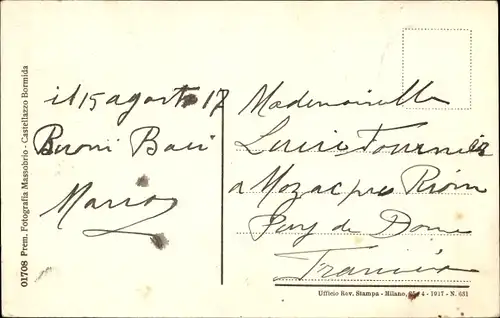 01708 Prem. Fotografia Massobrio - Castellazzo Bormida
il 15 agosto 17
Buoni Baci
Mario
Mademoiselle
Louise Fournier
a Mozac pres Riom
Puy de Dome
Francia
Ufficio Rev. Stampa - Milano, - 4 - 1917 - N. 631